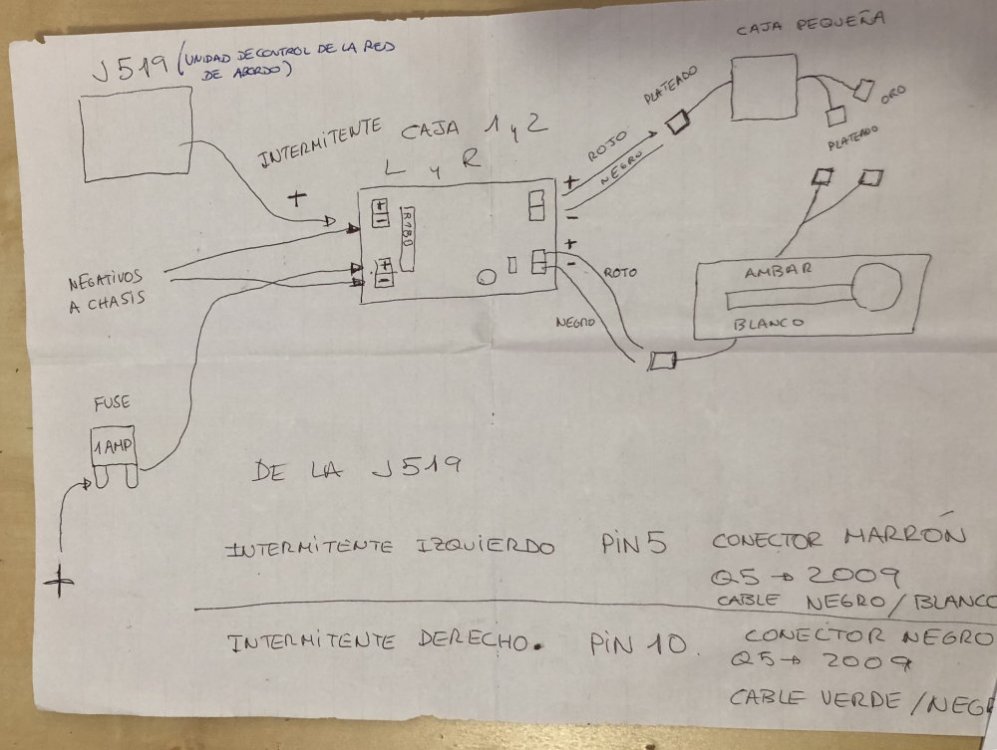 J519 (UNIDAD DE CONTROL DE LA RED
DE ABORDO)
CAJA PEQUEÑA
INTERMITENTE
CAJA 1 y 2
L y R
PLATEADO
ORO
PLATEADO
ROJO
NEGRO
+
+
-
+
-
R180
+
-
+
-
NEGATIVOS
A CHASIS
ROJO
NEGRO
AMBAR
BLANCO
FUSE
1 AMP
+
DE LA J519
INTERMITENTE IZQUIERDO PIN 5 CONECTOR MARRÓN
Q5 → 2009
CABLE NEGRO / BLANCO
INTERMITENTE DERECHO. PIN 10. CONECTOR NEGRO
Q5 → 2009
CABLE VERDE / NEG